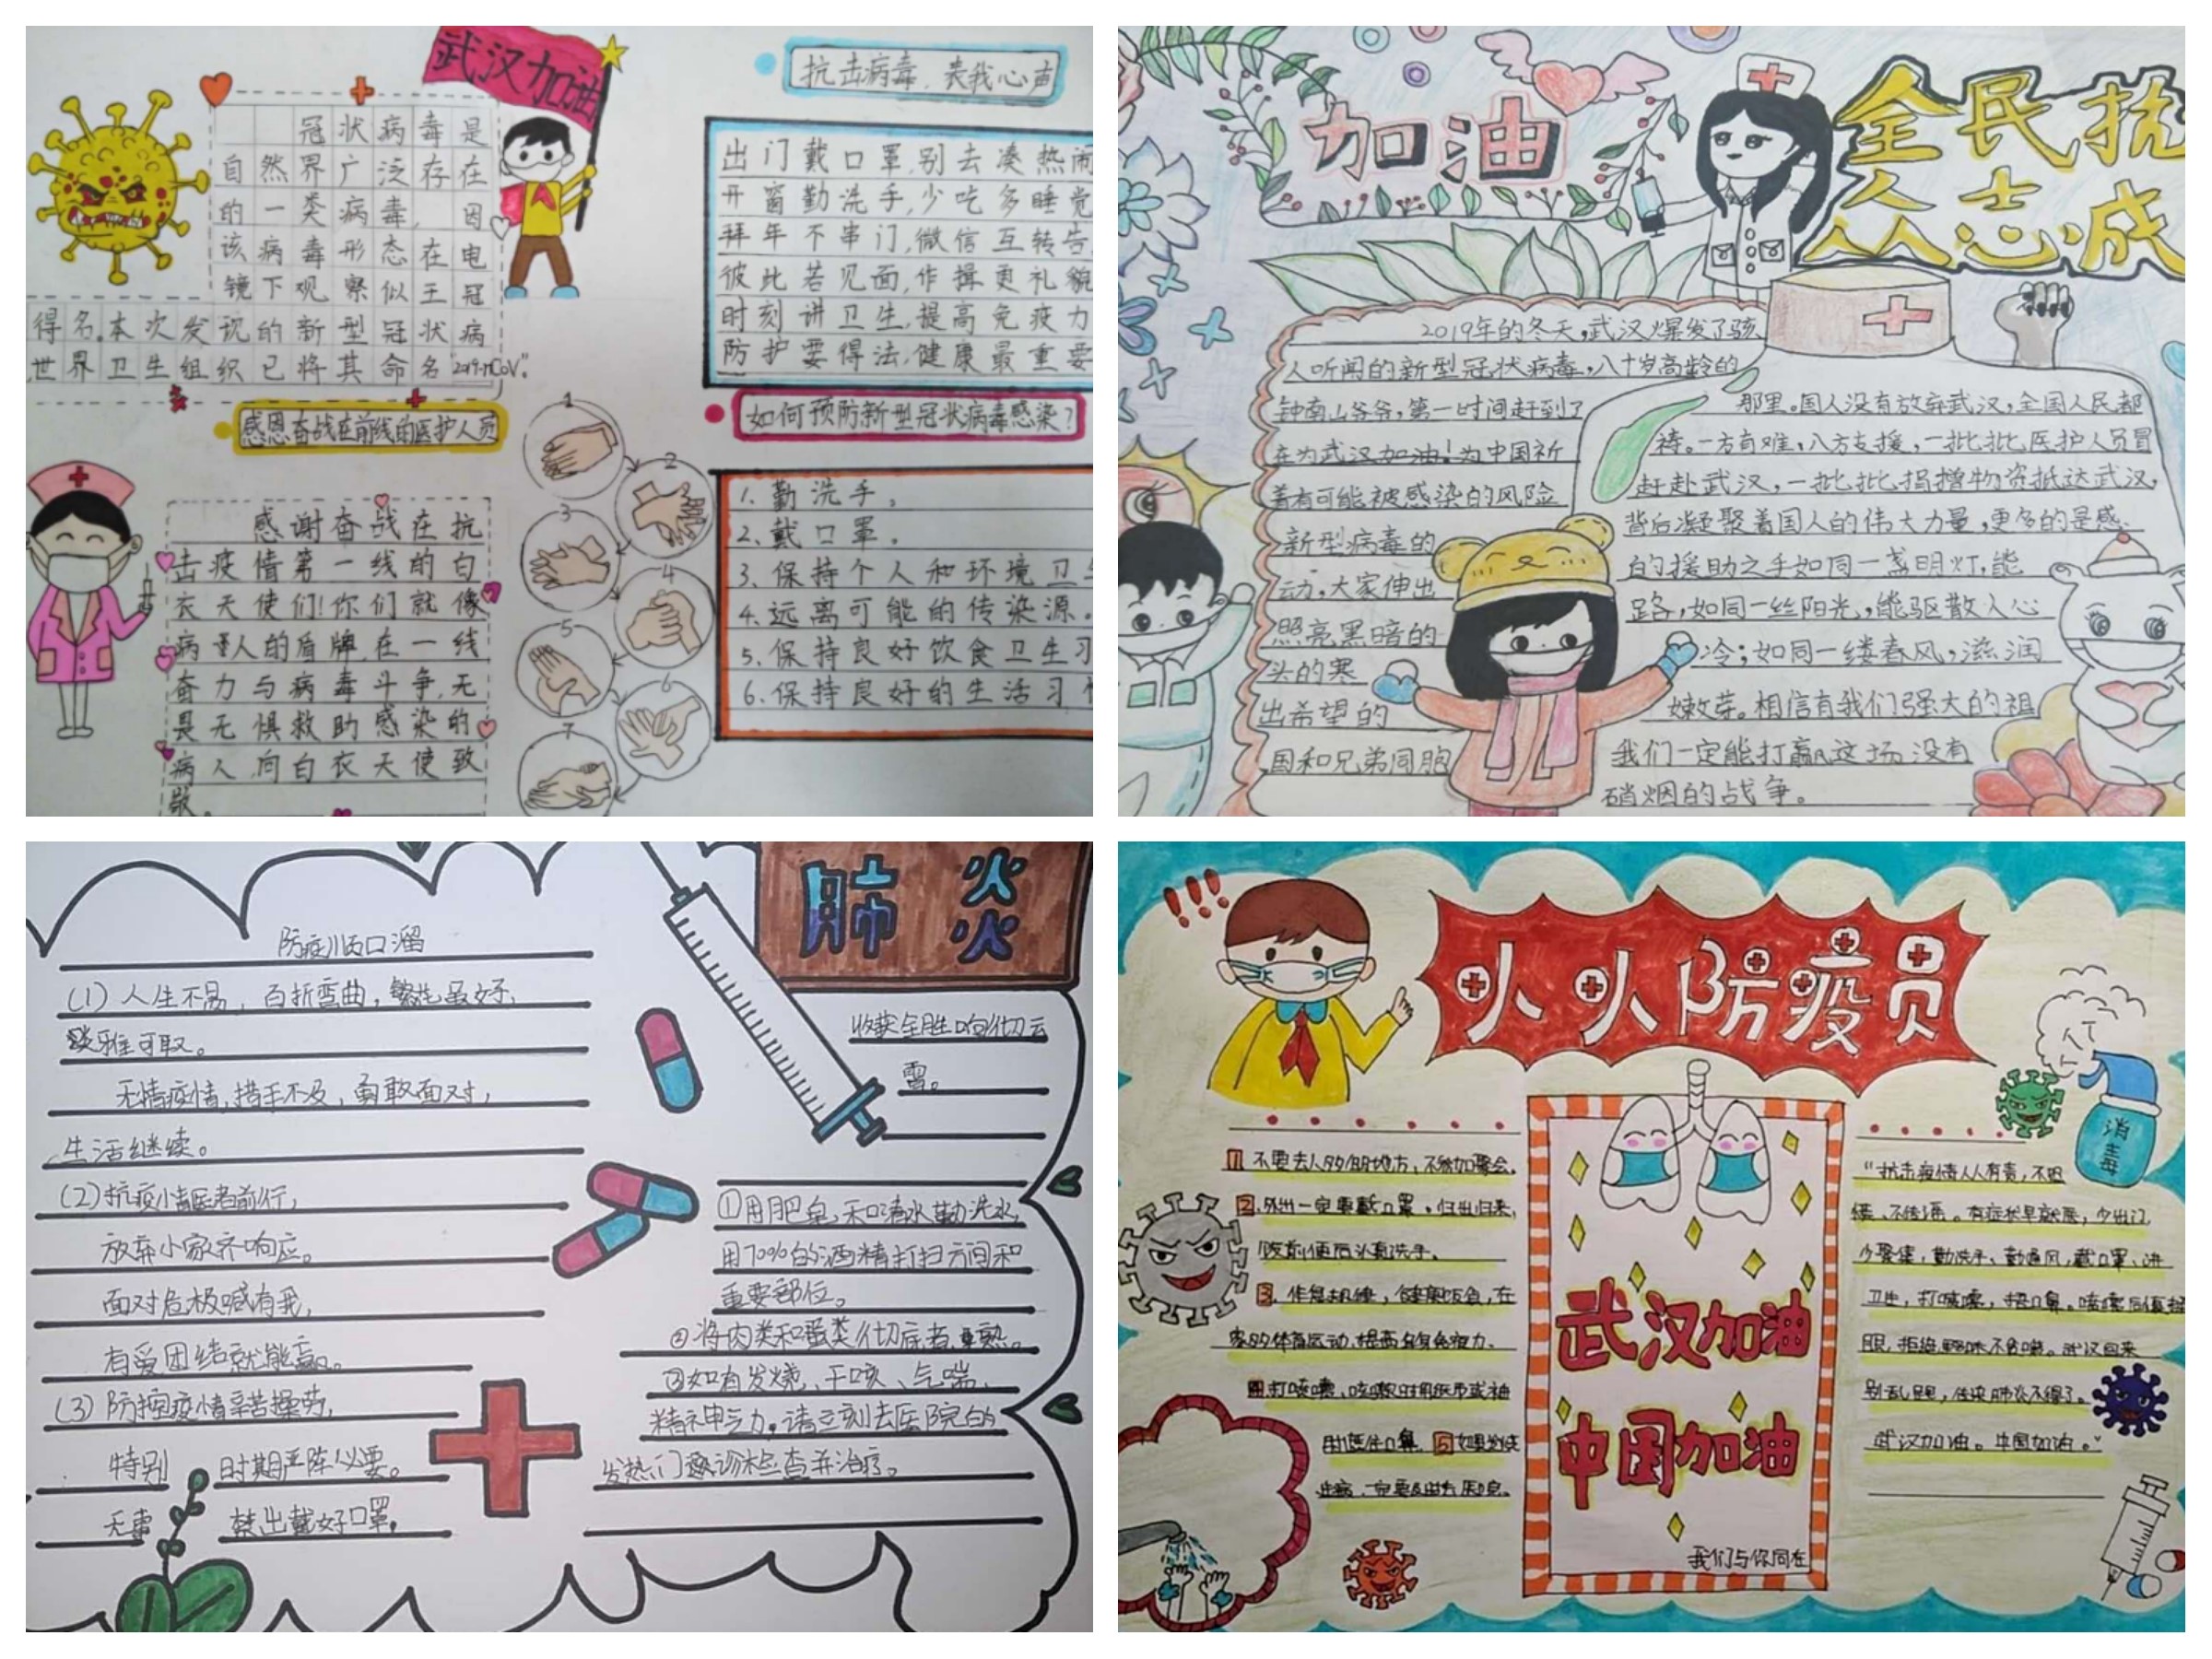 武汉加油
冠状病毒是
自然界广泛存在
的一类病毒,因
该病毒形态在电
镜下观察似王冠
得名.本次发现的新型冠状病
世界卫生组织已将其命名"2019-nCoV".
感恩奋战在前线的医护人员
感谢奋战在抗
击疫情第一线的白
衣天使们!你们就像
病人的盾牌,在一线
奋力与病毒斗争,无
畏无惧救助感染的
病人,向白衣天使致
敬.
1
2
3
4
5
6
7
抗击病毒,表我心声
出门戴口罩,别去凑热闹
开窗勤洗手,少吃多睡觉
拜年不串门,微信互转告.
彼此若见面,作揖更礼貌
时刻讲卫生,提高免疫力
防护要得法,健康最重要
如何预防新型冠状病毒感染?
1.勤洗手。
2.戴口罩。
3.保持个人和环境卫生
4.远离可能的传染源。
5.保持良好饮食卫生习
6.保持良好的生活习
加油
全民抗
众志成
2019年的冬天,武汉爆发了骇
人听闻的新型冠状病毒,八十岁高龄的
钟南山爷爷,第一时间赶到了
在为武汉加油!为中国祈
着有可能被感染的风险
新型病毒的
动,大家伸出
照亮黑暗的
头的寒
出希望的
国和兄弟同胞
那里。国人没有放弃武汉,全国人民都
祷。一方有难,八方支援,一批批医护人员冒
赶赴武汉,一批批捐赠物资抵达武汉,
背后凝聚着国人的伟大力量,更多的是感
的援助之手如同一盏明灯,能
路,如同一丝阳光,能驱散人心
冷;如同一缕春风,滋润
嫩芽。相信有我们强大的祖
我们一定能打赢这场没有
硝烟的战争。
肺炎
防疫顺口溜
(1)人生不易,百折弯曲,繁华虽好,
淡雅可取。
无情疫情,措手不及,勇敢面对,
生活继续。
(2)抗疫情医者前行,
放弃小家齐响应。
面对危极喊有我,
有爱团结就能赢。
(3)防控疫情辛苦操劳,
特别时期严阵以要。
无事禁出戴好口罩,
收获全胜响彻云
霄。
①用肥皂和清水勤洗水,
用70%的酒精打扫房间和
重要部位。
②将肉类和蛋类彻底煮熟。
③如有发烧、干咳、气喘、
精神乏力,请立刻去医院的
发热门诊检查并治疗。
人人防疫员
1 不要去人多的地方,不参加聚会。
2.外出一定要戴口罩。归出归来,
饭前便后认真洗手。
3.作息规律,健康饮食,在
家多体育运动,提高自身免疫力.
4.打喷嚏、咳嗽时用纸巾或袖
武汉加油
中国加油
我们与你同在
消毒
"抗击疫情人人有责,不恐
慌、不传谣。有症状早就医,少出门
少聚集,勤洗手、勤通风,戴口罩、讲
别乱跑,传染肺炎不得了。
武汉加油。中国加油。"